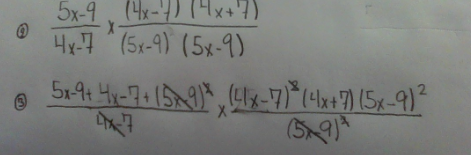 ② (5x-9)/(4x-7) × ((4x-7)(4x+7))/((5x-9)(5x-9))
③ (5x-9+4x-7+(5x-9)²)/(4x-7) × ((4x-7)²(4x+7)(5x-9)²)/((5x-9)²)